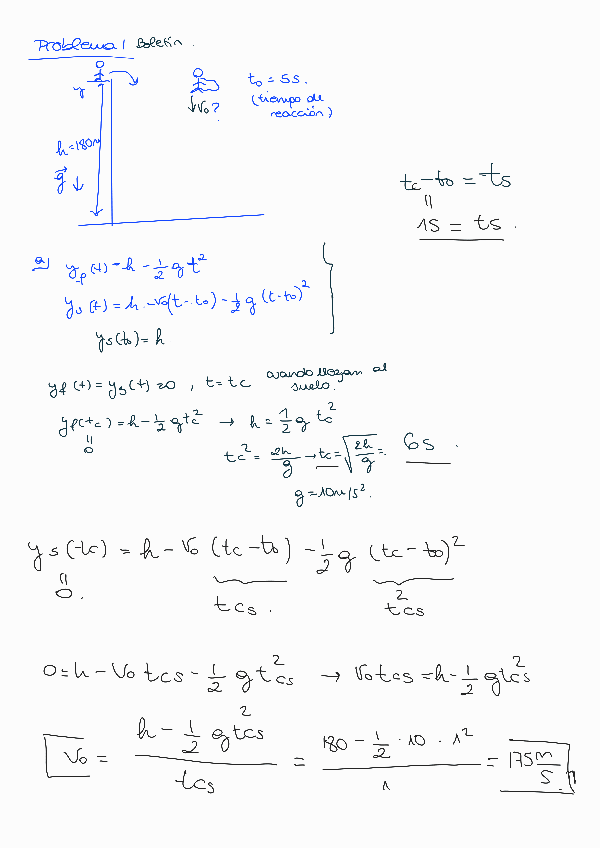 Problema 1 Boletín.
t₀ = 5s.
(tiempo de
reacción)
y
↓v₀?
h=180m
g⃗ ↓
tc-t₀ = ts
||
1s = ts.
a) y_f(t) = h - 1/2 g t²
y_s(t) = h - v₀(t-t₀) - 1/2 g (t-t₀)²
y_s(t₀) = h
y_f(t) = y_s(t) = 0 , t = tc cuando llegan al
suelo.
y_f(tc) = h - 1/2 g tc² → h = 1/2 g tc²
||
0
tc² = 2h/g → tc = √(2h/g) = 6s.
g = 10m/s².
y_s(tc) = h - v₀ (tc-t₀) - 1/2 g (tc-t₀)²
||
0.
tcs. tcs²
0 = h - v₀ tcs - 1/2 g tcs² → v₀ tcs = h - 1/2 g tcs²
v₀ = (h - 1/2 g tcs²)/tcs = (180 - 1/2 · 10 · 1²)/1 = 175 m/s